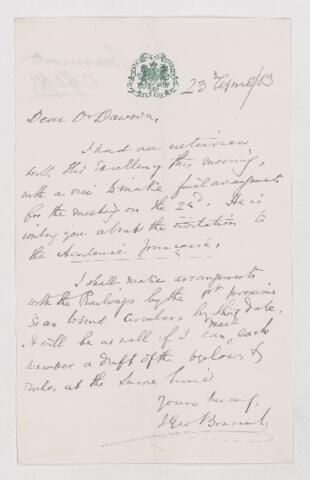 23 April/83
Dear Dr Dawson,
I had an interview
with His Excellency this morning,
with a view to make final arrangements
for the meeting on the 22d. He is
writing you about the invitation to
the Academié française.
I shall make arrangements
with the Railways by the 1st proximo
so as to send Circulars by that date.
It will be as well if I can mail each
member a draft of the bylaws &
rules at the same time
Yours truly,
J Geo Bourinot